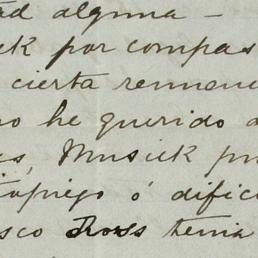 ad alguna –
k por compas
cierta remune
no he querido a
es, Musick pu
ó dific
sco Ross tenia